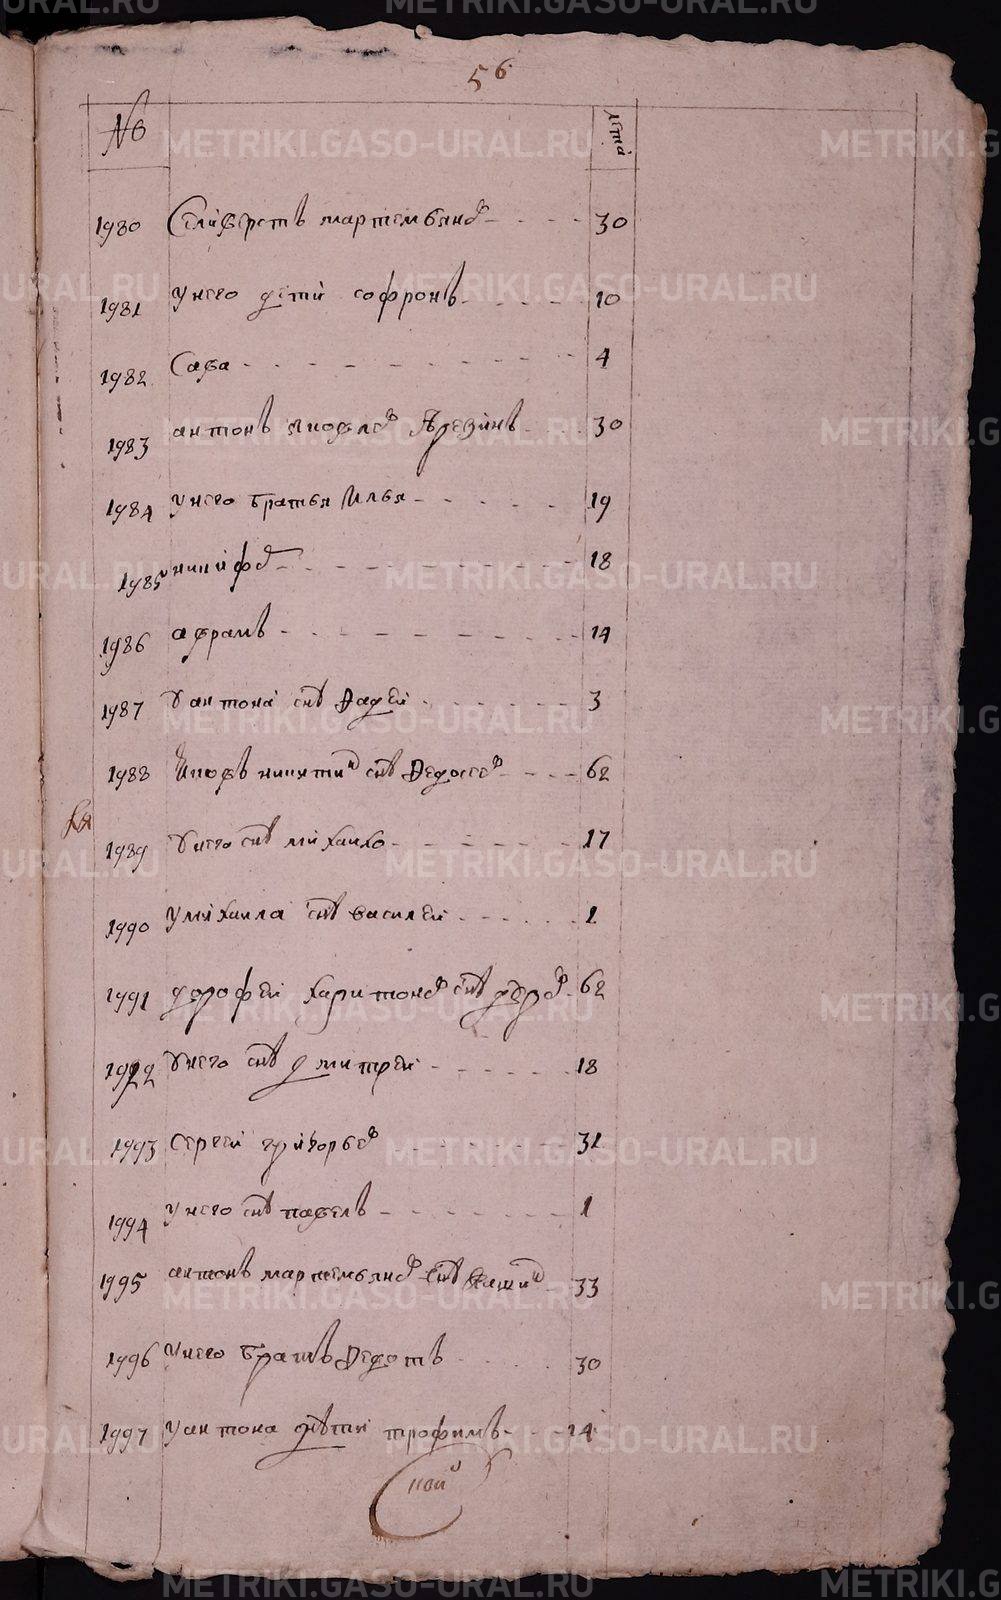 56
№ лѣта
1980 Селиверстъ мартемьянов 30
1981 у него дети софронъ 10
1982 Сава 4
1983 антонъ 30
1984 у него братья Илья 19
1985 никифор 18
1986 аврамъ 14
1987 у антона снъ Фадей 3
1988 никитин снъ Федосеев 62
1989 у него снъ михаило 17
1990 у михаила снъ василей 1
1991 дорофей харитонов снъ 62
1992 у него снъ дмитрей 18
1993 сергей григорьев 31
1994 у него снъ павелъ 1
1995 антонъ мартемьянов снъ 33
1996 у него братъ Федотъ 30
1997 у антона дѣти трофимъ 14
METRIKI.GASO-URAL.RU